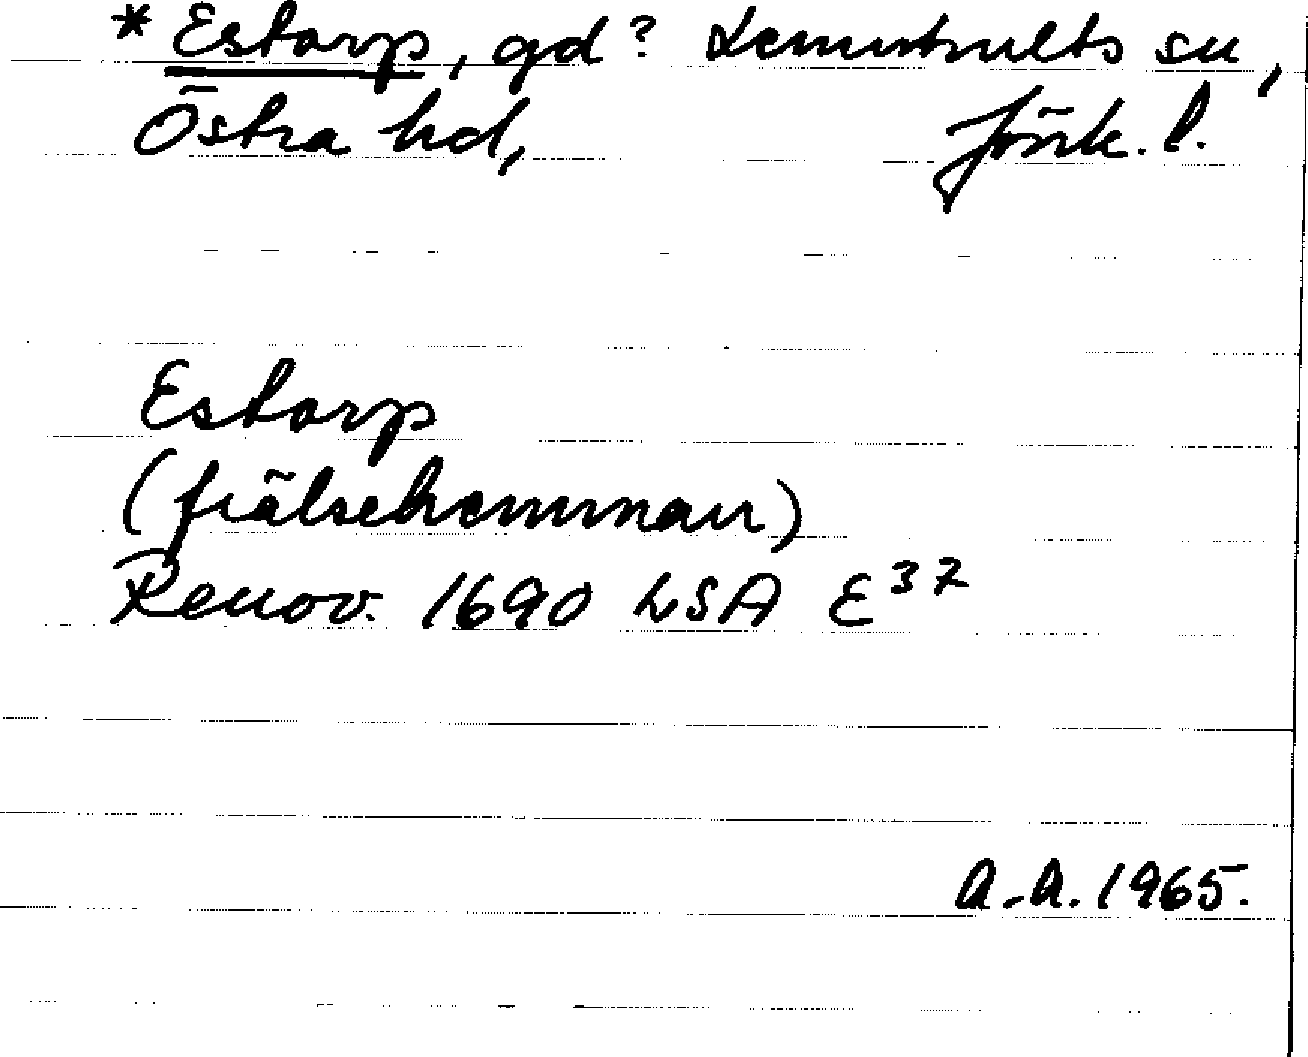 * Estorp, gd? Lemnhults sn,
Östra hd, Jönk. l.
Estorp
(frälsehemman)
Renov. 1690 LSA E³⁷
A.-A. 1965.